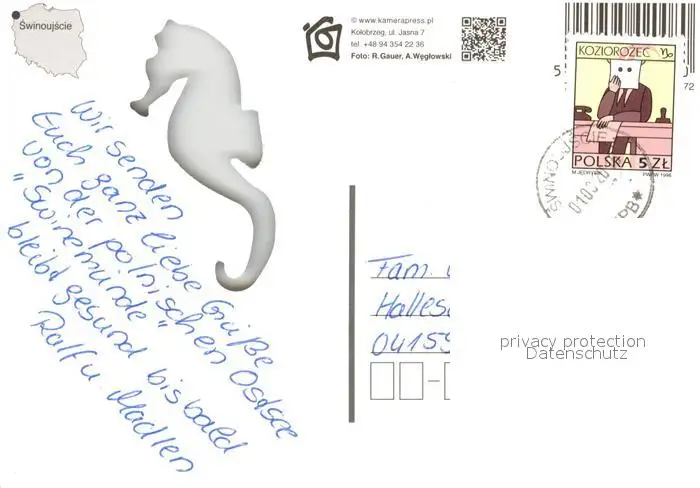 Świnoujście
© www.kamerapress.pl
Kołobrzeg, ul. Jasna 7
tel. +48 94 354 22 36
Foto: R.Gauer, A.Węgłowski
5
72
KOZIOROŻEC
POLSKA 5 ZŁ
M.JĘDRYSIK PWPW 1996
Wir senden
Euch ganz liebe Grüße
von der polnischen Ostsee
"Swinemünde"
bleibt gesund bis bald
Ralf u. Madlen
Fam.
Halles
04159
privacy protection
Datenschutz